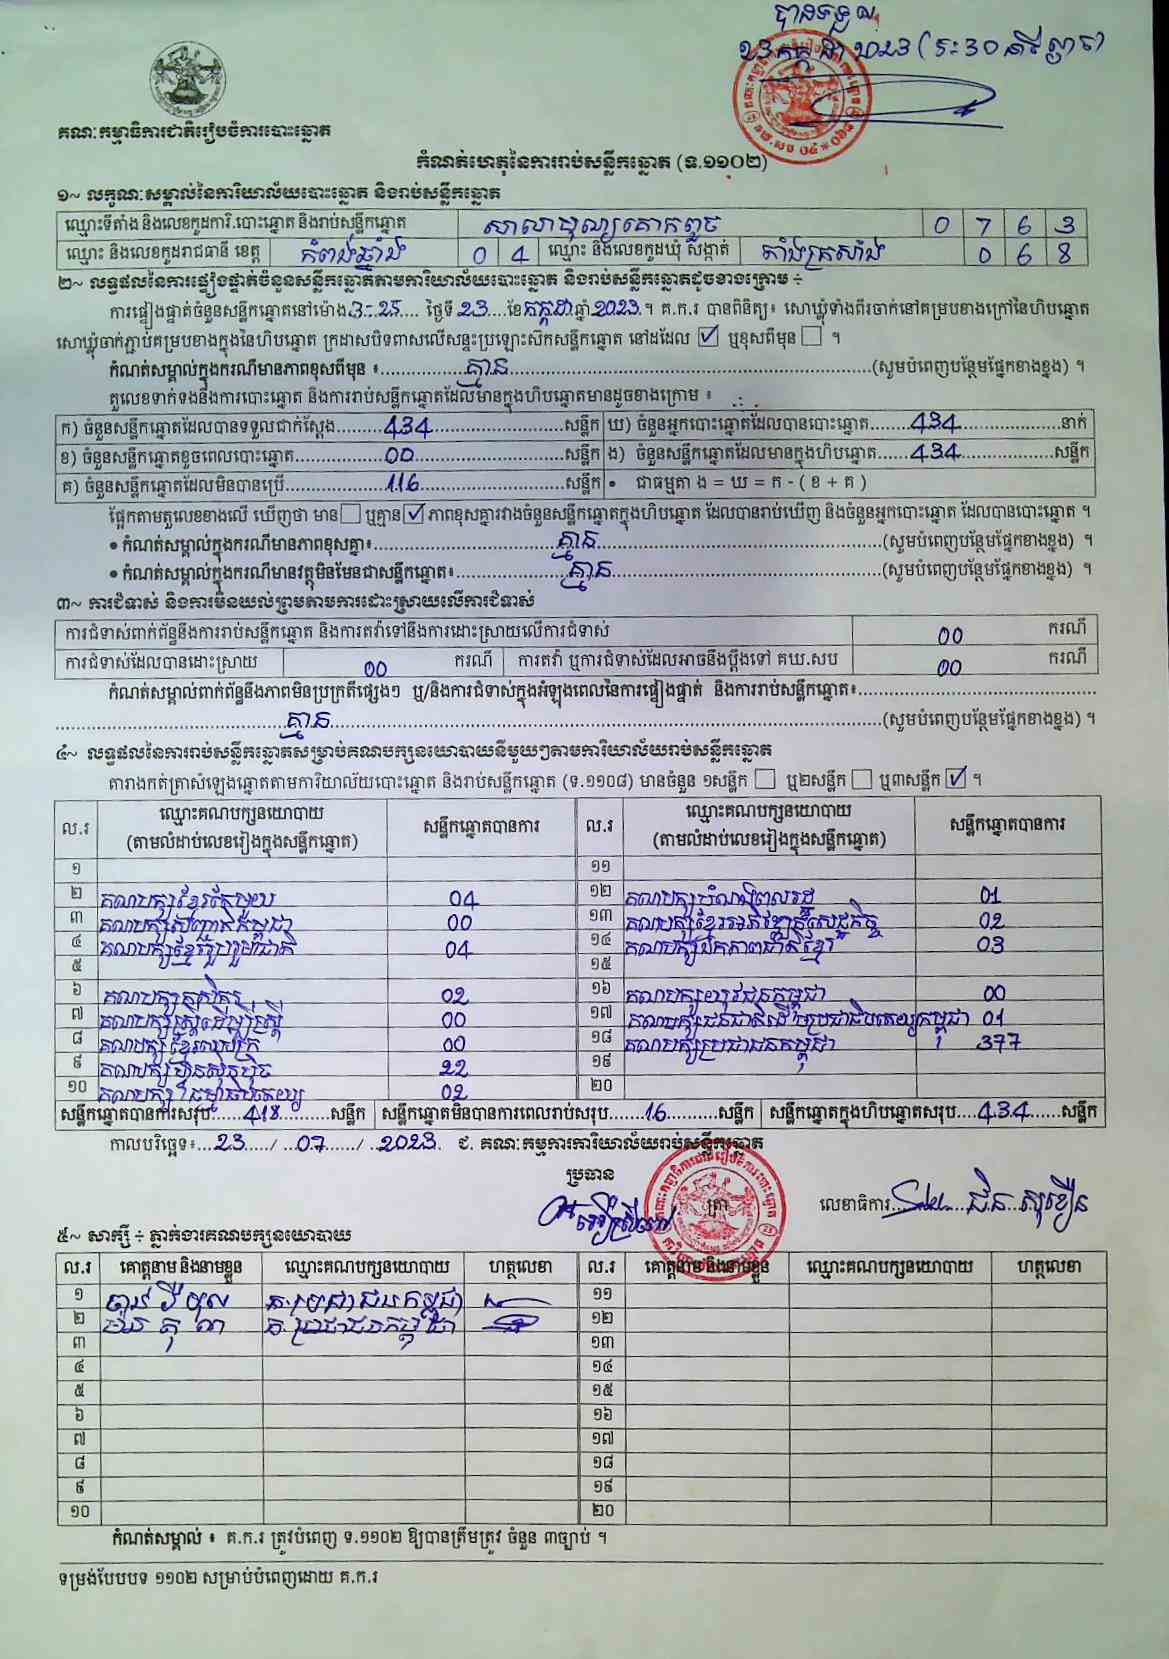 បានទទួល
23 កក្កដា 2023 (5:30 នាទី ល្ងាច)
គណៈកម្មាធិការជាតិរៀបចំការបោះឆ្នោត
កំណត់ហេតុនៃការរាប់សន្លឹកឆ្នោត (ទ.១១០២)
១~ លក្ខណៈសម្គាល់នៃការិយាល័យបោះឆ្នោត និងរាប់សន្លឹកឆ្នោត
ឈ្មោះទីតាំង និងលេខកូដការិ.បោះឆ្នោត និងរាប់សន្លឹកឆ្នោត សាលាបុណ្យគោកពួច 0 7 6 3
ឈ្មោះ និងលេខកូដរាជធានី ខេត្ត កំពង់ឆ្នាំង 0 4 ឈ្មោះ និងលេខកូដឃុំ សង្កាត់ តាំងក្រសាំង 0 6 8
២~ លទ្ធផលនៃការផ្ទៀងផ្ទាត់ចំនួនសន្លឹកឆ្នោតតាមការិយាល័យបោះឆ្នោត និងរាប់សន្លឹកឆ្នោតដូចខាងក្រោម ÷
ការផ្ទៀងផ្ទាត់ចំនួនសន្លឹកឆ្នោតនៅម៉ោង 3:25 ថ្ងៃទី 23 ខែ កក្កដា ឆ្នាំ 2023 ។ គ.ក.រ បានពិនិត្យ៖ សោឃ្លុំទាំងពីរចាក់នៅគម្របខាងក្រៅនៃហិបឆ្នោត
សោឃ្លុំចាក់ភ្ជាប់គម្របខាងក្នុងនៃហិបឆ្នោត ក្រដាសបិទពាសលើសន្ទះប្រឡោះស៊កសន្លឹកឆ្នោត នៅដដែល ☑ ឬខុសពីមុន ☐ ។
កំណត់សម្គាល់ក្នុងករណីមានភាពខុសពីមុន ៖ គ្មាន (សូមបំពេញបន្ថែមផ្នែកខាងខ្នង) ។
តួលេខទាក់ទងនឹងការបោះឆ្នោត និងការរាប់សន្លឹកឆ្នោតដែលមានក្នុងហិបឆ្នោតមានដូចខាងក្រោម ៖
ក) ចំនួនសន្លឹកឆ្នោតដែលបានទទួលជាក់ស្តែង 434 សន្លឹក ឃ) ចំនួនអ្នកបោះឆ្នោតដែលបានបោះឆ្នោត 434 នាក់
ខ) ចំនួនសន្លឹកឆ្នោតខូចពេលបោះឆ្នោត 00 សន្លឹក ង) ចំនួនសន្លឹកឆ្នោតដែលមានក្នុងហិបឆ្នោត 434 សន្លឹក
គ) ចំនួនសន្លឹកឆ្នោតដែលមិនបានប្រើ 116 សន្លឹក • ជាធម្មតា ង = ឃ = ក - ( ខ + គ )
ផ្អែកតាមតួលេខខាងលើ ឃើញថា មាន ☐ ឬគ្មាន ☑ ភាពខុសគ្នារវាងចំនួនសន្លឹកឆ្នោតក្នុងហិបឆ្នោត ដែលបានរាប់ឃើញ និងចំនួនអ្នកបោះឆ្នោត ដែលបានបោះឆ្នោត ។
• កំណត់សម្គាល់ក្នុងករណីមានភាពខុសគ្នា៖ គ្មាន (សូមបំពេញបន្ថែមផ្នែកខាងខ្នង) ។
• កំណត់សម្គាល់ក្នុងករណីមានវត្ថុមិនមែនជាសន្លឹកឆ្នោត៖ គ្មាន (សូមបំពេញបន្ថែមផ្នែកខាងខ្នង) ។
៣~ ការជំទាស់ និងការមិនយល់ព្រមតាមការដោះស្រាយលើការជំទាស់
ការជំទាស់ពាក់ព័ន្ធនឹងការរាប់សន្លឹកឆ្នោត និងការតវ៉ាទៅនឹងការដោះស្រាយលើការជំទាស់ 00 ករណី
ការជំទាស់ដែលបានដោះស្រាយ 00 ករណី ការតវ៉ា ឬការជំទាស់ដែលអាចនឹងប្តឹងទៅ គឃ.សប 00 ករណី
កំណត់សម្គាល់ពាក់ព័ន្ធនឹងភាពមិនប្រក្រតីផ្សេងៗ ឬ/និងការជំទាស់ក្នុងអំឡុងពេលនៃការផ្ទៀងផ្ទាត់ និងការរាប់សន្លឹកឆ្នោត៖
គ្មាន (សូមបំពេញបន្ថែមផ្នែកខាងខ្នង) ។
៤~ លទ្ធផលនៃការរាប់សន្លឹកឆ្នោតសម្រាប់គណបក្សនយោបាយនីមួយៗតាមការិយាល័យរាប់សន្លឹកឆ្នោត
តារាងកត់ត្រាសំឡេងឆ្នោតតាមការិយាល័យបោះឆ្នោត និងរាប់សន្លឹកឆ្នោត (ទ.១១០៨) មានចំនួន ១សន្លឹក ☐ ឬ២សន្លឹក ☐ ឬ៣សន្លឹក ☑ ។
ល.រ ឈ្មោះគណបក្សនយោបាយ (តាមលំដាប់លេខរៀងក្នុងសន្លឹកឆ្នោត) សន្លឹកឆ្នោតបានការ ល.រ ឈ្មោះគណបក្សនយោបាយ (តាមលំដាប់លេខរៀងក្នុងសន្លឹកឆ្នោត) សន្លឹកឆ្នោតបានការ
១ ១១
២ គណបក្សខ្មែរតែមួយ 04 ១២ គណបក្សបំណងពលរដ្ឋ 01
៣ គណបក្សសញ្ជាតិកម្ពុជា 00 ១៣ គណបក្សខ្មែរអភិវឌ្ឍន៍សេដ្ឋកិច្ច 02
៤ គណបក្សខ្មែររួបរួមជាតិ 04 ១៤ គណបក្សឯកភាពជាតិខ្មែរ 03
៥ ១៥
៦ គណបក្សកសិករ 02 ១៦ គណបក្សយុវជនកម្ពុជា 00
៧ គណបក្សស្ត្រីដើម្បីស្ត្រី 00 ១៧ គណបក្សជនជាតិដើមប្រជាធិបតេយ្យកម្ពុជា 01
៨ គណបក្សខ្មែរឈប់ក្រ 00 ១៨ គណបក្សប្រជាជនកម្ពុជា 377
៩ គណបក្សហ៊្វុនស៊ិនប៉ិច 22 ១៩
១០ គណបក្សធម្មាធិបតេយ្យ 02 ២០
សន្លឹកឆ្នោតបានការសរុប 418 សន្លឹក សន្លឹកឆ្នោតមិនបានការពេលរាប់សរុប 16 សន្លឹក សន្លឹកឆ្នោតក្នុងហិបឆ្នោតសរុប 434 សន្លឹក
កាលបរិច្ឆេទ៖ 23 / 07 / 2023 ជ. គណៈកម្មការការិយាល័យរាប់សន្លឹកឆ្នោត
ប្រធាន
ត្រា
លេខាធិការ ជិន សុខឿន
៥~ សាក្សី ÷ ភ្នាក់ងារគណបក្សនយោបាយ
ល.រ គោត្តនាម និងនាមខ្លួន ឈ្មោះគណបក្សនយោបាយ ហត្ថលេខា ល.រ គោត្តនាម និងនាមខ្លួន ឈ្មោះគណបក្សនយោបាយ ហត្ថលេខា
១ គ.ប្រជាជនកម្ពុជា ១១
២ គ.ប្រជាជនកម្ពុជា ១២
៣ ១៣
៤ ១៤
៥ ១៥
៦ ១៦
៧ ១៧
៨ ១៨
៩ ១៩
១០ ២០
កំណត់សម្គាល់ ៖ គ.ក.រ ត្រូវបំពេញ ទ.១១០២ ឱ្យបានត្រឹមត្រូវ ចំនួន ៣ច្បាប់ ។
ទម្រង់បែបបទ ១១០២ សម្រាប់បំពេញដោយ គ.ក.រ